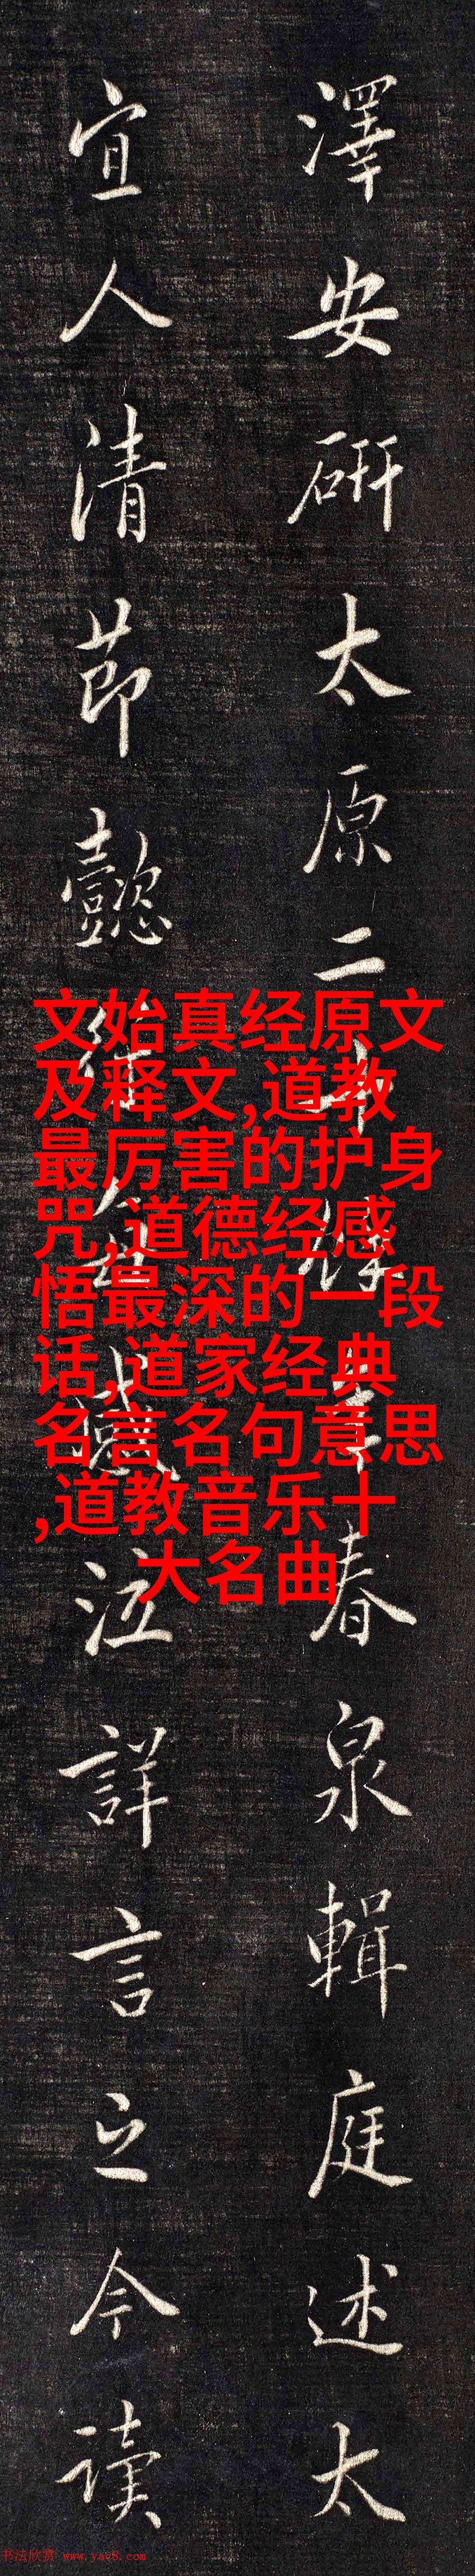 澤安硏太原二春泉輯庭述太
宜人清節懿泣詳言之今讀
文始真经原文
及释文,道教
最厉害的护身
咒,道德经感
悟最深的一段
话,道家经典
名言名句意思
,道教音乐十
大名曲
书法欣赏 www.yac8.com